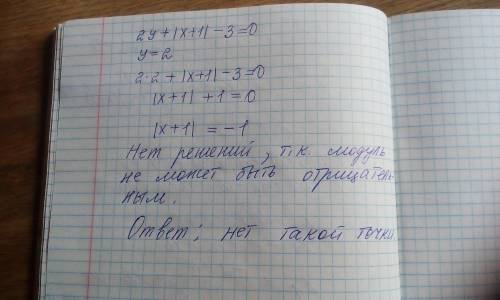 2y+|x+1|-3=0
y=2
2·2+|x+1|-3=0
|x+1|+1=0
|x+1|=-1
Нет решений, т.к. модуль
не может быть отрицатель-
ным.
Ответ: нет такой точки